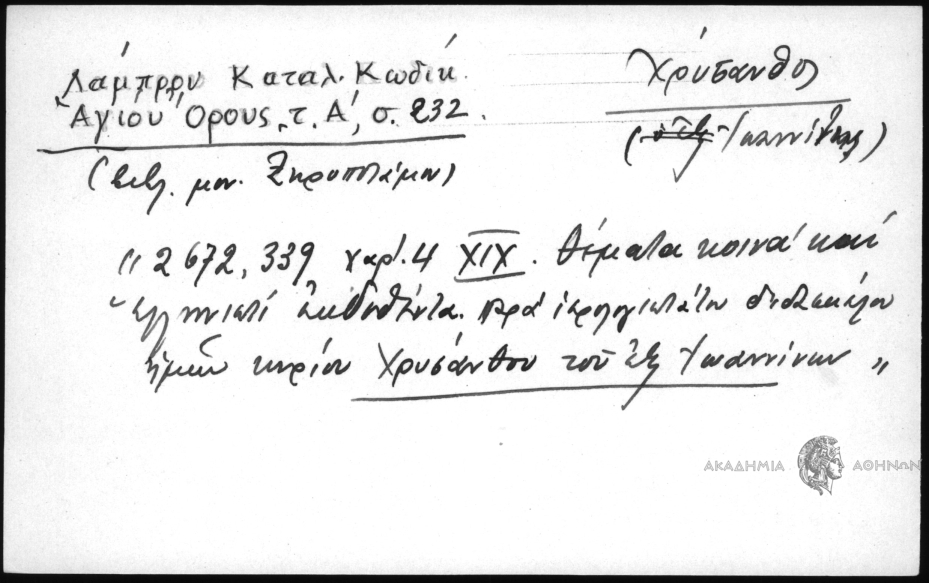 Λάμπρου Καταλ. Κωδίκ.
Ἁγίου Ὄρους, τ. Α', σ. 232.
(βιβλ. μον. Ξηροποτάμου)
Χρύσανθος
(ὁ ἐξ Ἰωαννίτης)
"2672, 339 χαρ. 4 XIX. Θέματα κοινὰ καὶ
ἑλληνιστὶ ἐκδοθέντα παρὰ ἱερολογιωτάτου διδασκάλου
ἡμῶν κυρίου Χρυσάνθου τοῦ ἐξ Ἰωαννίνων"
ΑΚΑΔΗΜΙΑ ΑΘΗΝΩΝ